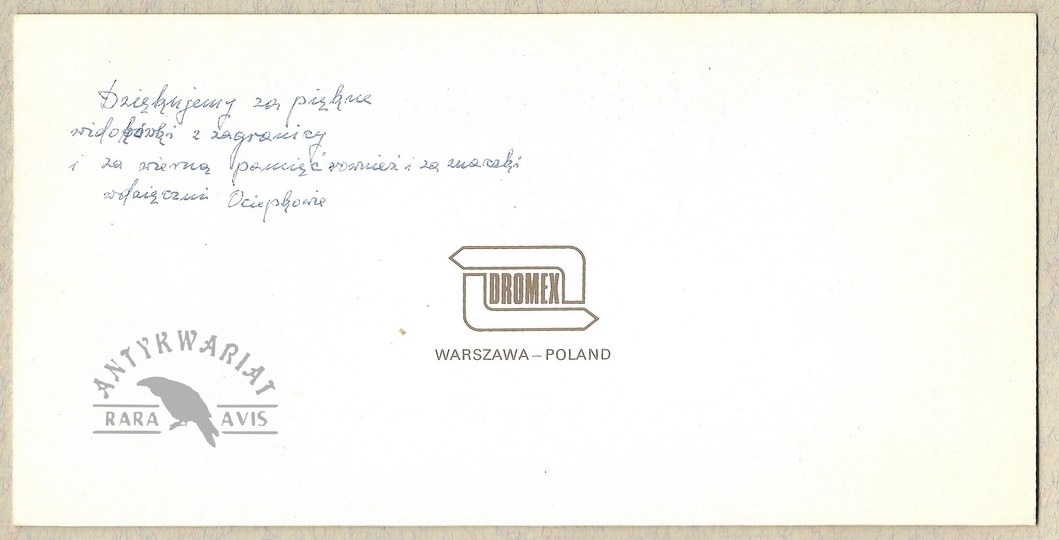 Dziękujemy za piękne
widokówki z zagranicy
i za wierną pamięć rownież i za znaczki
wdzięczni Ociepkowie
DROMEX
WARSZAWA – POLAND
ANTYKWARIAT
RARA AVIS